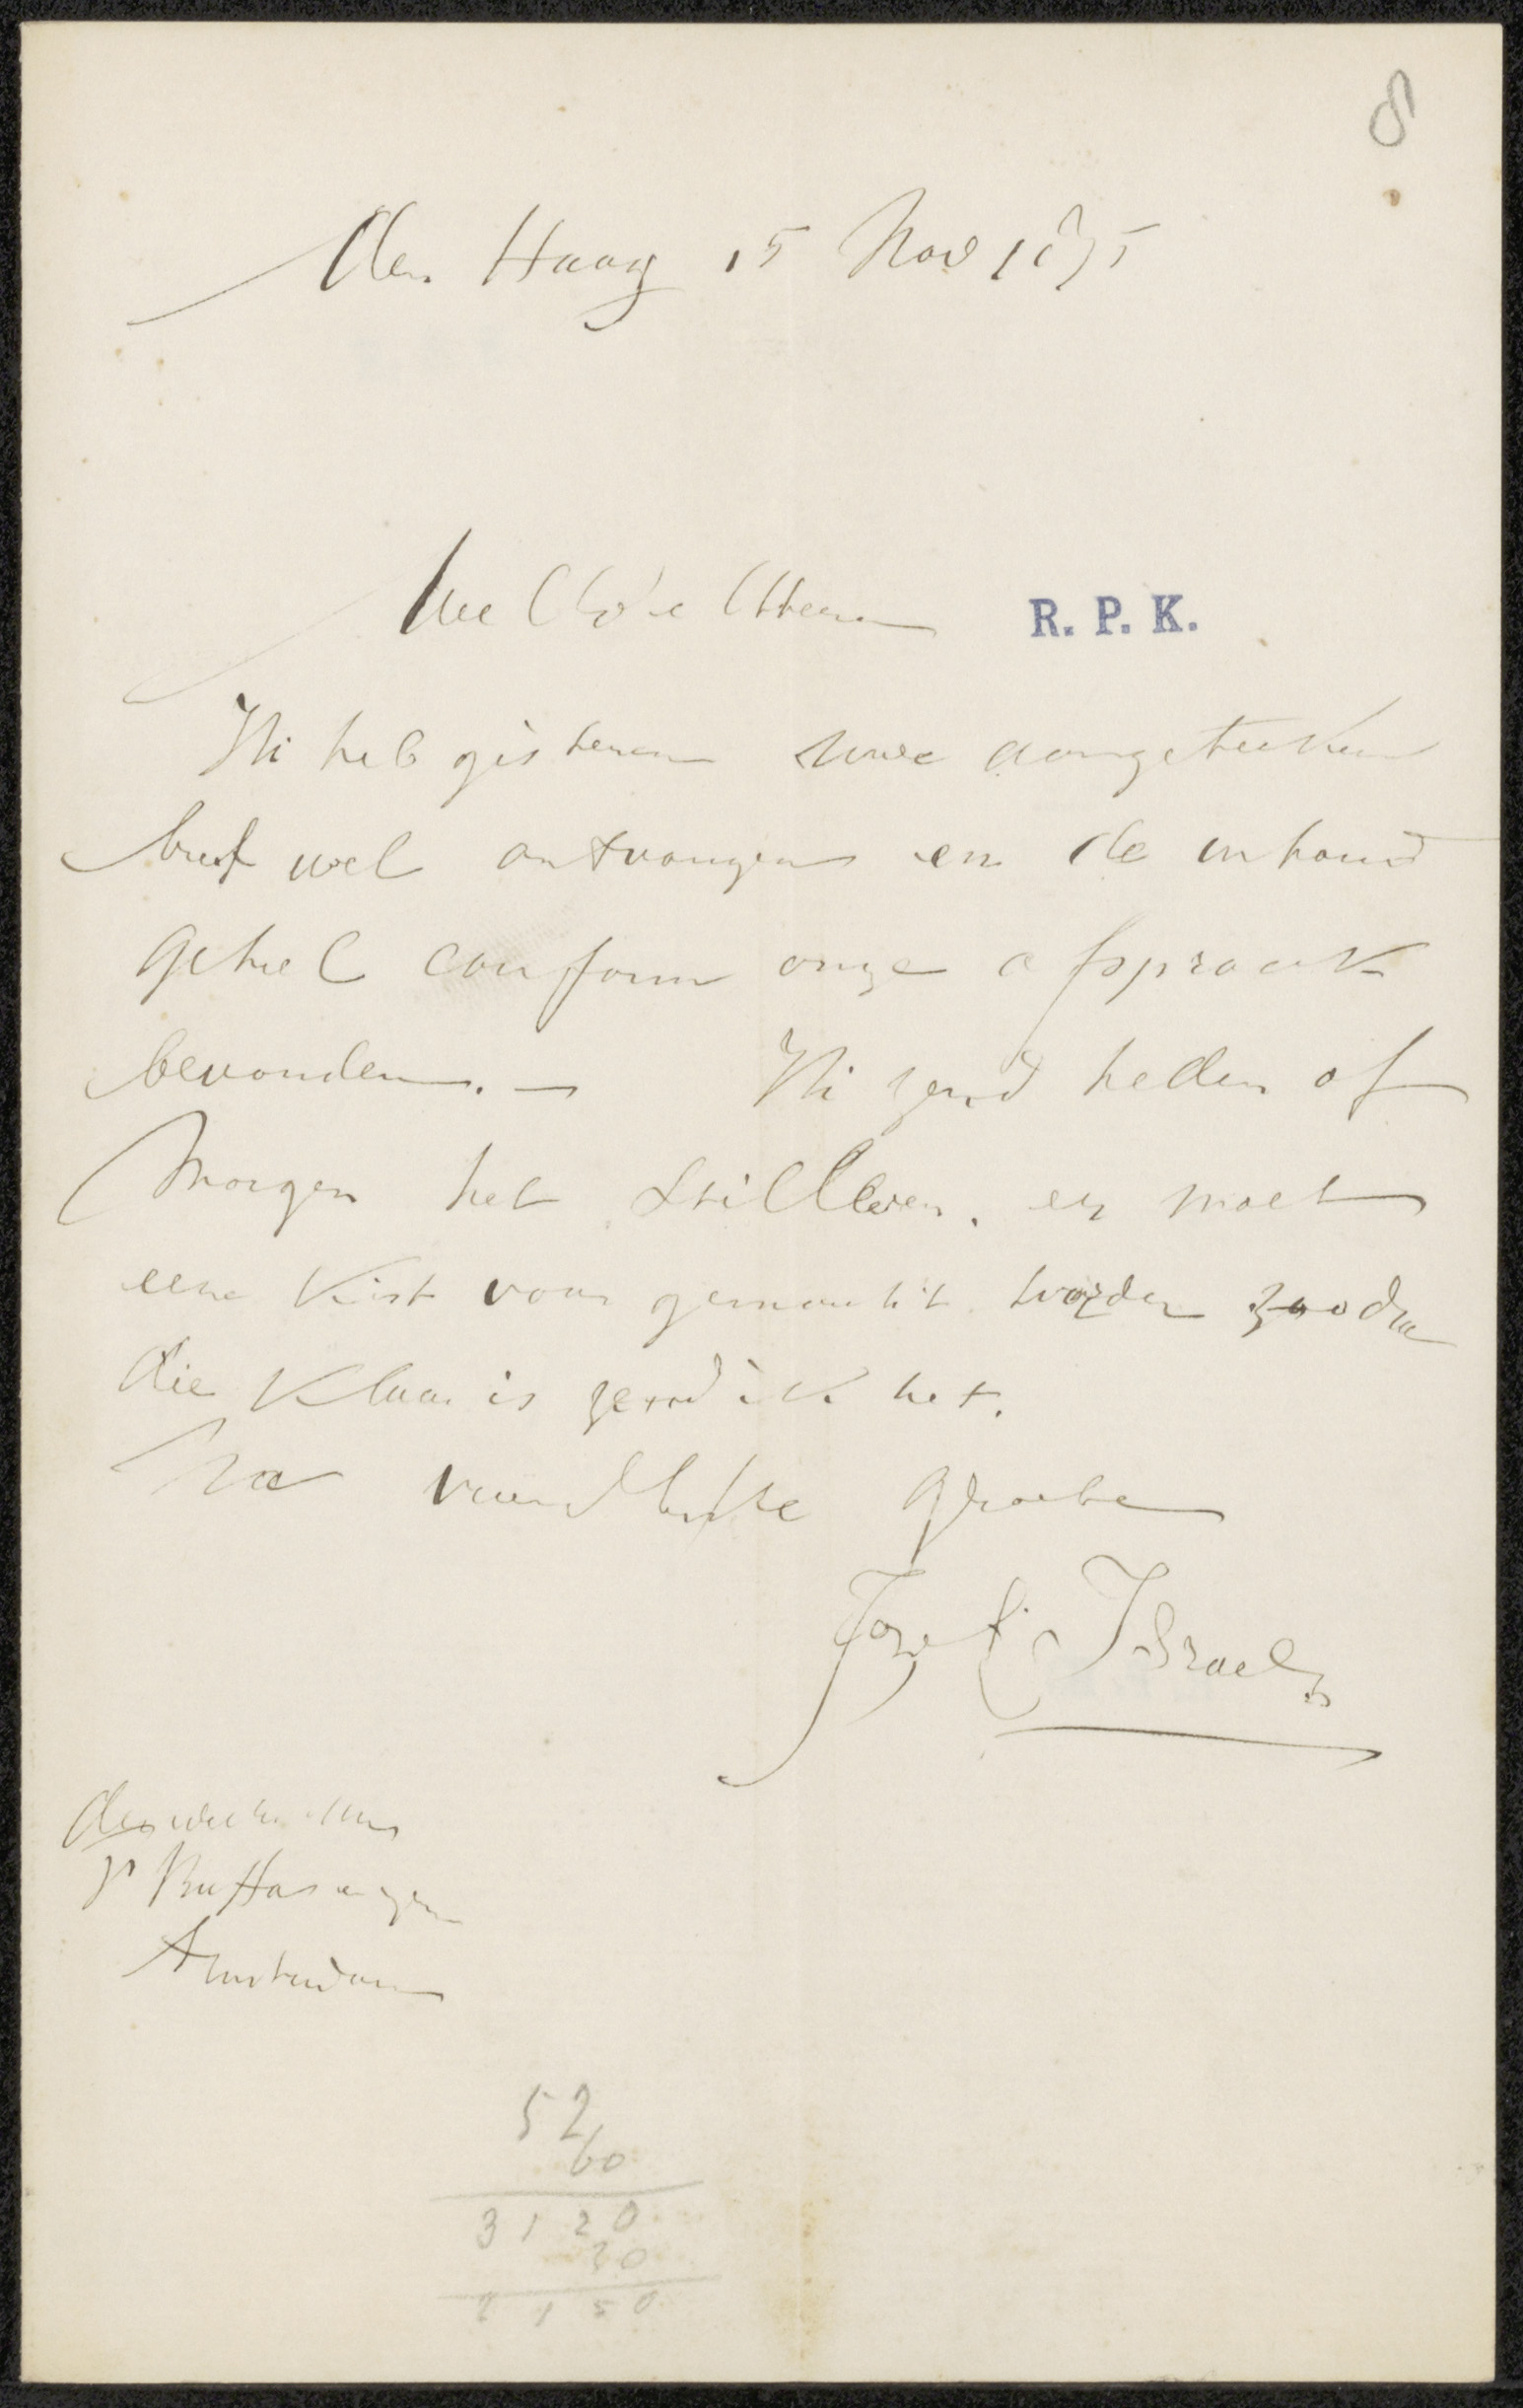 8
den Haag 15 Nov 1875
WelEdele Heeren
R. P. K.
Ik heb gisteren uwe aangeteekend
brief wel ontvangen en de inhoud
geheel conform onze afspraak
bevonden. — Ik zend heden of
morgen het Stillleven. er moet
eene kist voor gemaakt worden zoodra
die klaar is zend ik het.
Na vriendlijke groeten
Jozef Israels
den
Buffa en zn
Amsterdam
52
60
3120
30
3150